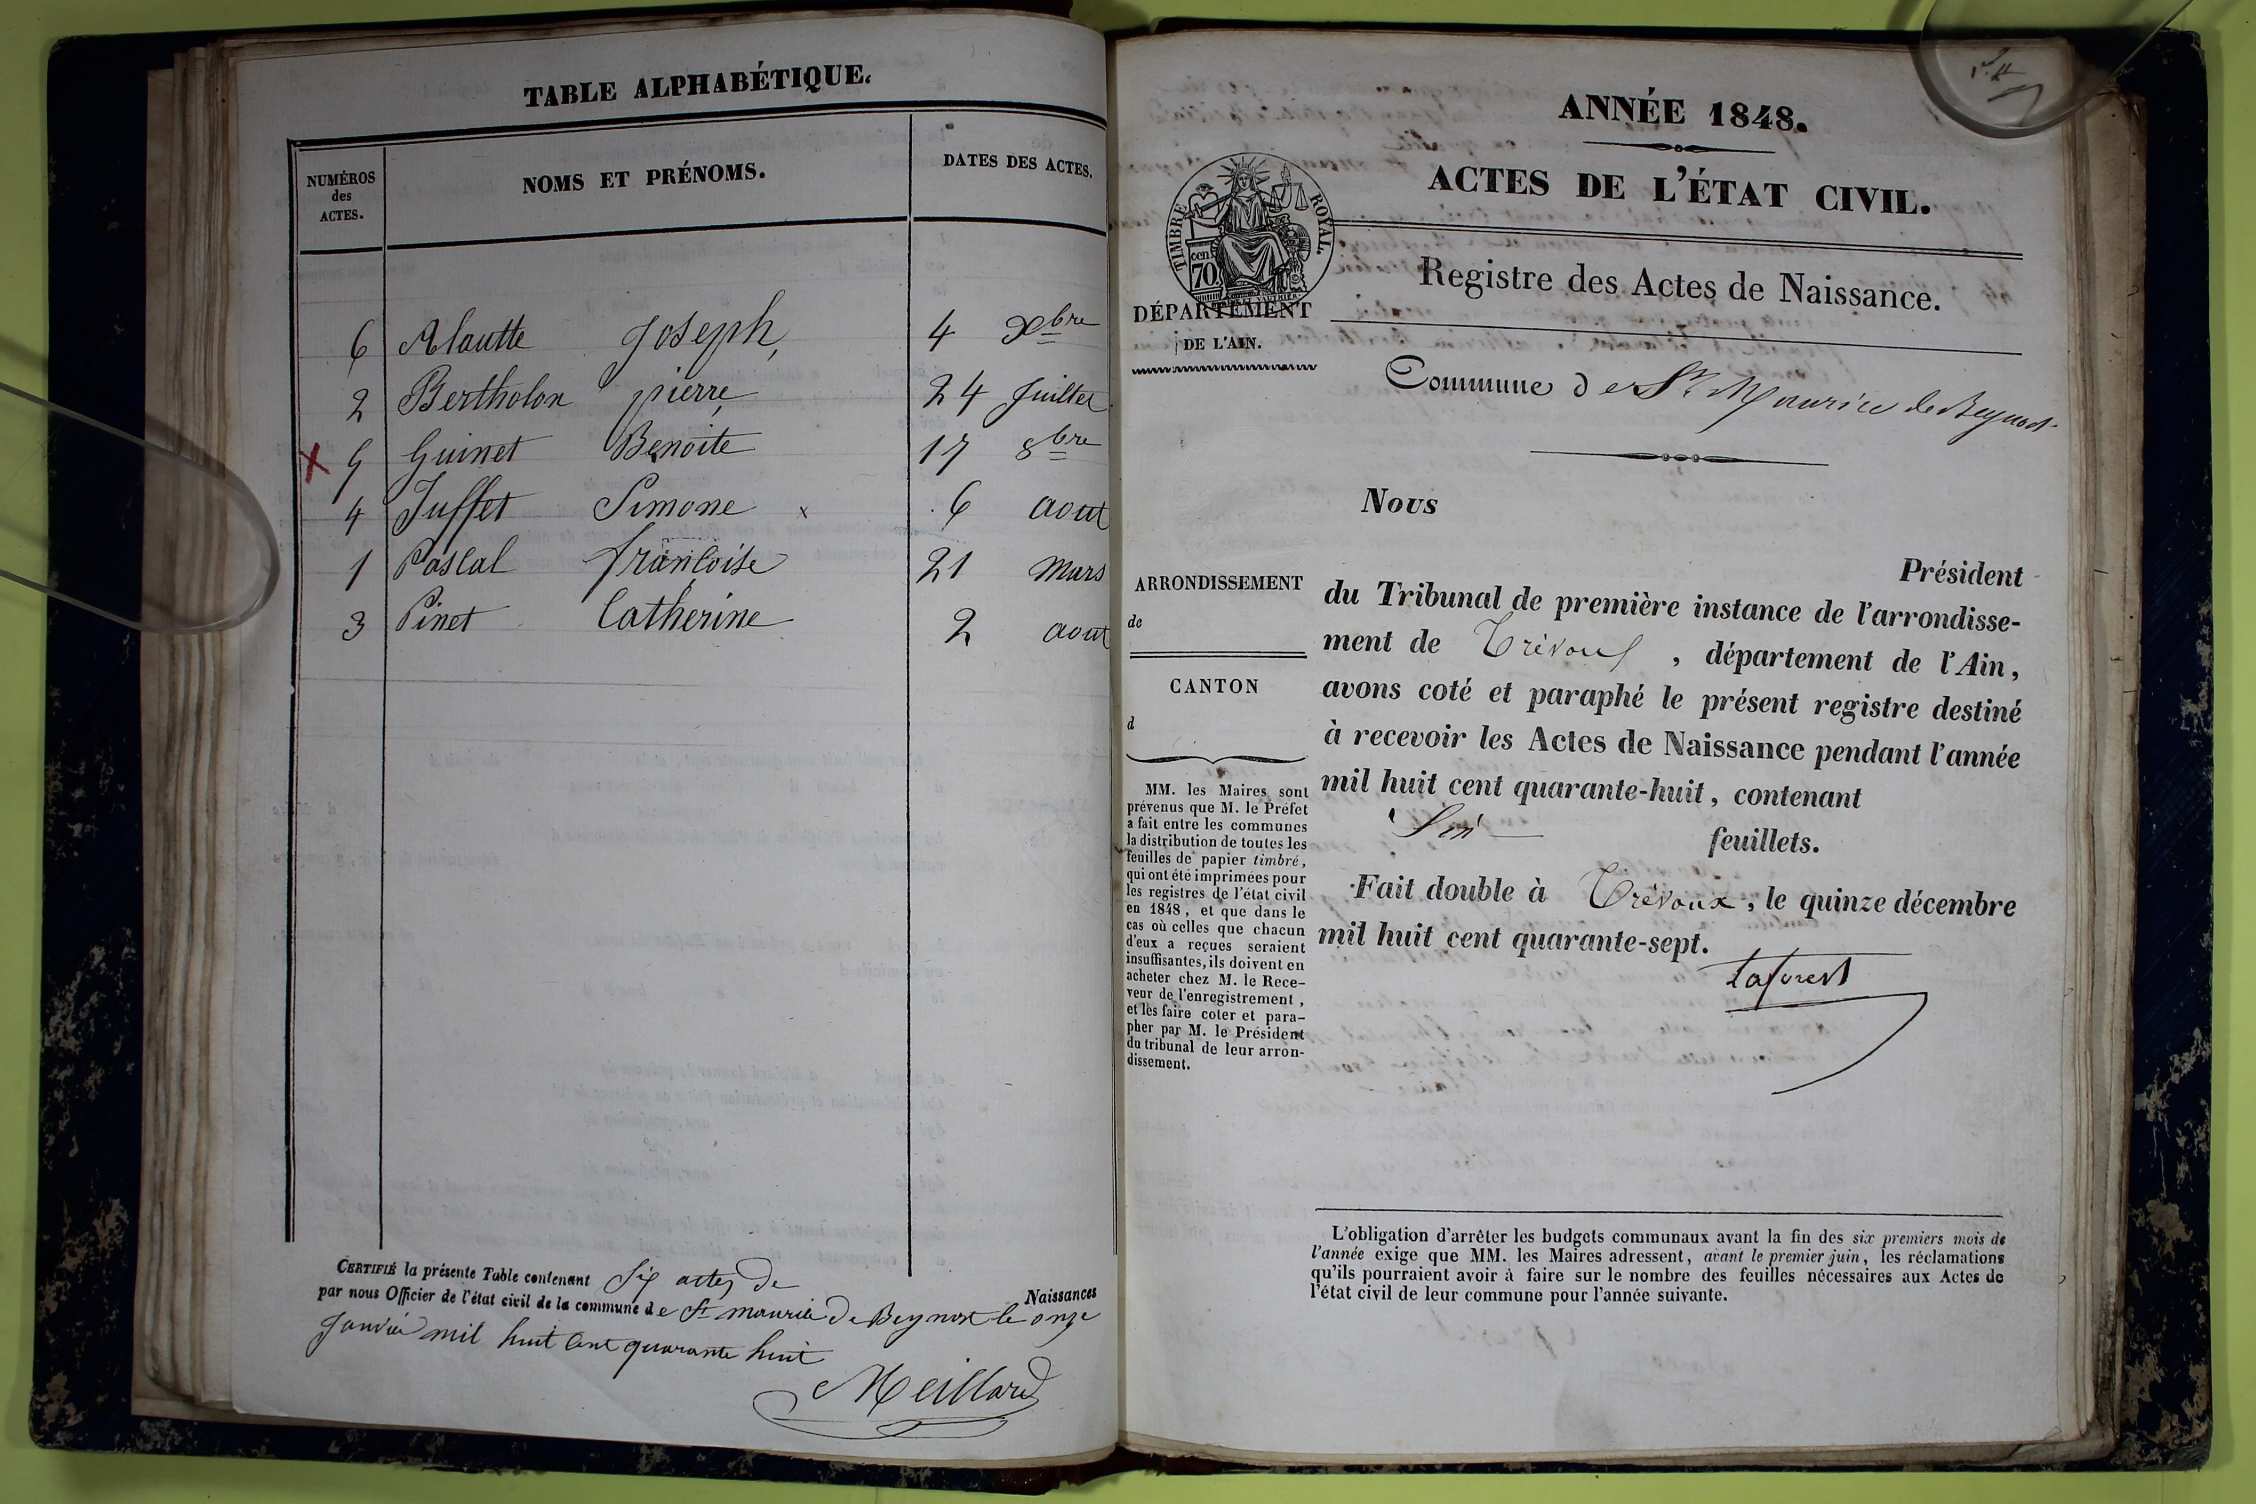 TABLE ALPHABÉTIQUE.
NUMÉROS
des
ACTES.
NOMS ET PRÉNOMS.
DATES DES ACTES.
6 Alautte Joseph, 4 Xbre
2 Bertholon pierre, 24 Juillet
5 Guinet Benoite 17 8bre
4 Juffet Simone x 6 aout
1 Pascal francoise 21 Mars
3 Pinet Catherine 2 aout
CERTIFIÉ la présente Table contenant Six actes de Naissances
par nous Officier de l'état civil de la commune de St maurice de Beynost le onze
Janvier mil huit cent quarante huit
Meillard
ANNÉE 1848.
ACTES DE L'ÉTAT CIVIL.
TIMBRE ROYAL.
cen.
70
DÉPARTEMENT
DE L'AIN.
Registre des Actes de Naissance.
Commune de St Maurice de Beynost
Nous
Président
du Tribunal de première instance de l'arrondisse-
ment de Trévoux, département de l'Ain,
avons coté et paraphé le présent registre destiné
à recevoir les Actes de Naissance pendant l'année
mil huit cent quarante-huit, contenant
Six feuillets.
Fait double à Trévoux, le quinze décembre
mil huit cent quarante-sept.
Laforest
ARRONDISSEMENT
de
CANTON
d
MM. les Maires sont
prévenus que M. le Préfet
a fait entre les communes
la distribution de toutes les
feuilles de papier timbré,
qui ont été imprimées pour
les registres de l'état civil
en 1848, et que dans le
cas où celles que chacun
d'eux a reçues seraient
insuffisantes, ils doivent en
acheter chez M. le Rece-
veur de l'enregistrement,
et les faire coter et para-
pher par M. le Président
du tribunal de leur arron-
dissement.
L'obligation d'arrêter les budgets communaux avant la fin des six premiers mois de
l'année exige que MM. les Maires adressent, avant le premier juin, les réclamations
qu'ils pourraient avoir à faire sur le nombre des feuilles nécessaires aux Actes de
l'état civil de leur commune pour l'année suivante.